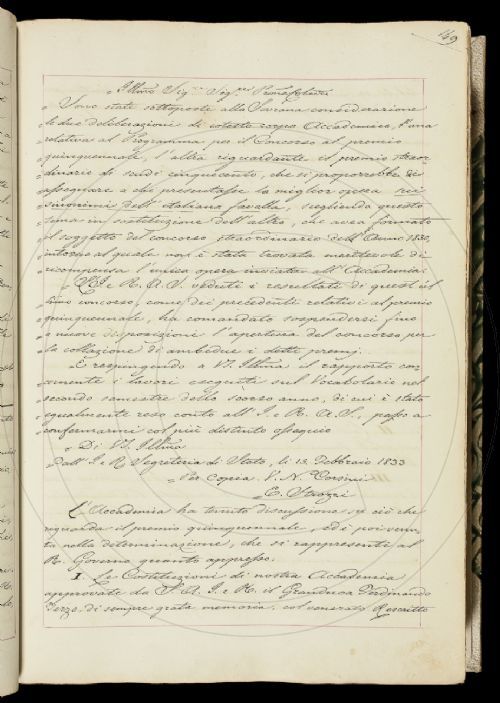 149
„ Illmo Sig.re Sig.re
„ Sono state sottoposte alla Sovrana considerazione
„ le due deliberazioni di cotesto corpo Accademico, l'una
„ relativa al Programma per il Concorso al premio
„ quinquennale, l'altra riguardante il premio straor
„ dinario di scudi cinquecento, che si proporrebbe di
„ assegnare a chi presentasse la miglior opera sui
„ sinonimi dell'italiana favella, scegliendo questo
„ tema in sostituzione dell'altro, che avea formato
„ il soggetto del concorso straordinario dell'Anno 1830,
„ intorno al quale non è stata trovata meritevole di
„ ricompensa l'unica opera inviata all'Accademia.
„ S. A. I. e R. veduti i resultati di questo
„ concorso, come dei precedenti relativi al premio
„ quinquennale, ha comandato sospendersi fino
„ a nuove disposizioni l'apertura del concorso per
„ la collazione di ambedue i detti premj.
„ E respingendo a VS. Illma il rapporto con
„ cernente i lavori eseguiti sul Vocabolario nel
„ secondo semestre dello scorso anno, di cui è stato
„ egualmente reso conto all'I. e R. A. S., passo a
„ confermarmi col più distinto ossequio
„ Di VS. Illma
„ Dall'I. e R. Segreteria di Stato, li 13 Febbraio 1833
„ Per Copia. V. N. Corsini
„ E. Strozzi
L'Accademia ha tenuto discussione su ciò che
riguarda il premio quinquennale, ed è poi venu
ta nella determinazione, che si rappresenti al
R. Governo quanto appresso.
I. Le Costituzioni di nostra Accademia
approvate da S. A. I. e R. il Granduca Ferdinando
Terzo di sempre grata memoria col venerato Rescritto